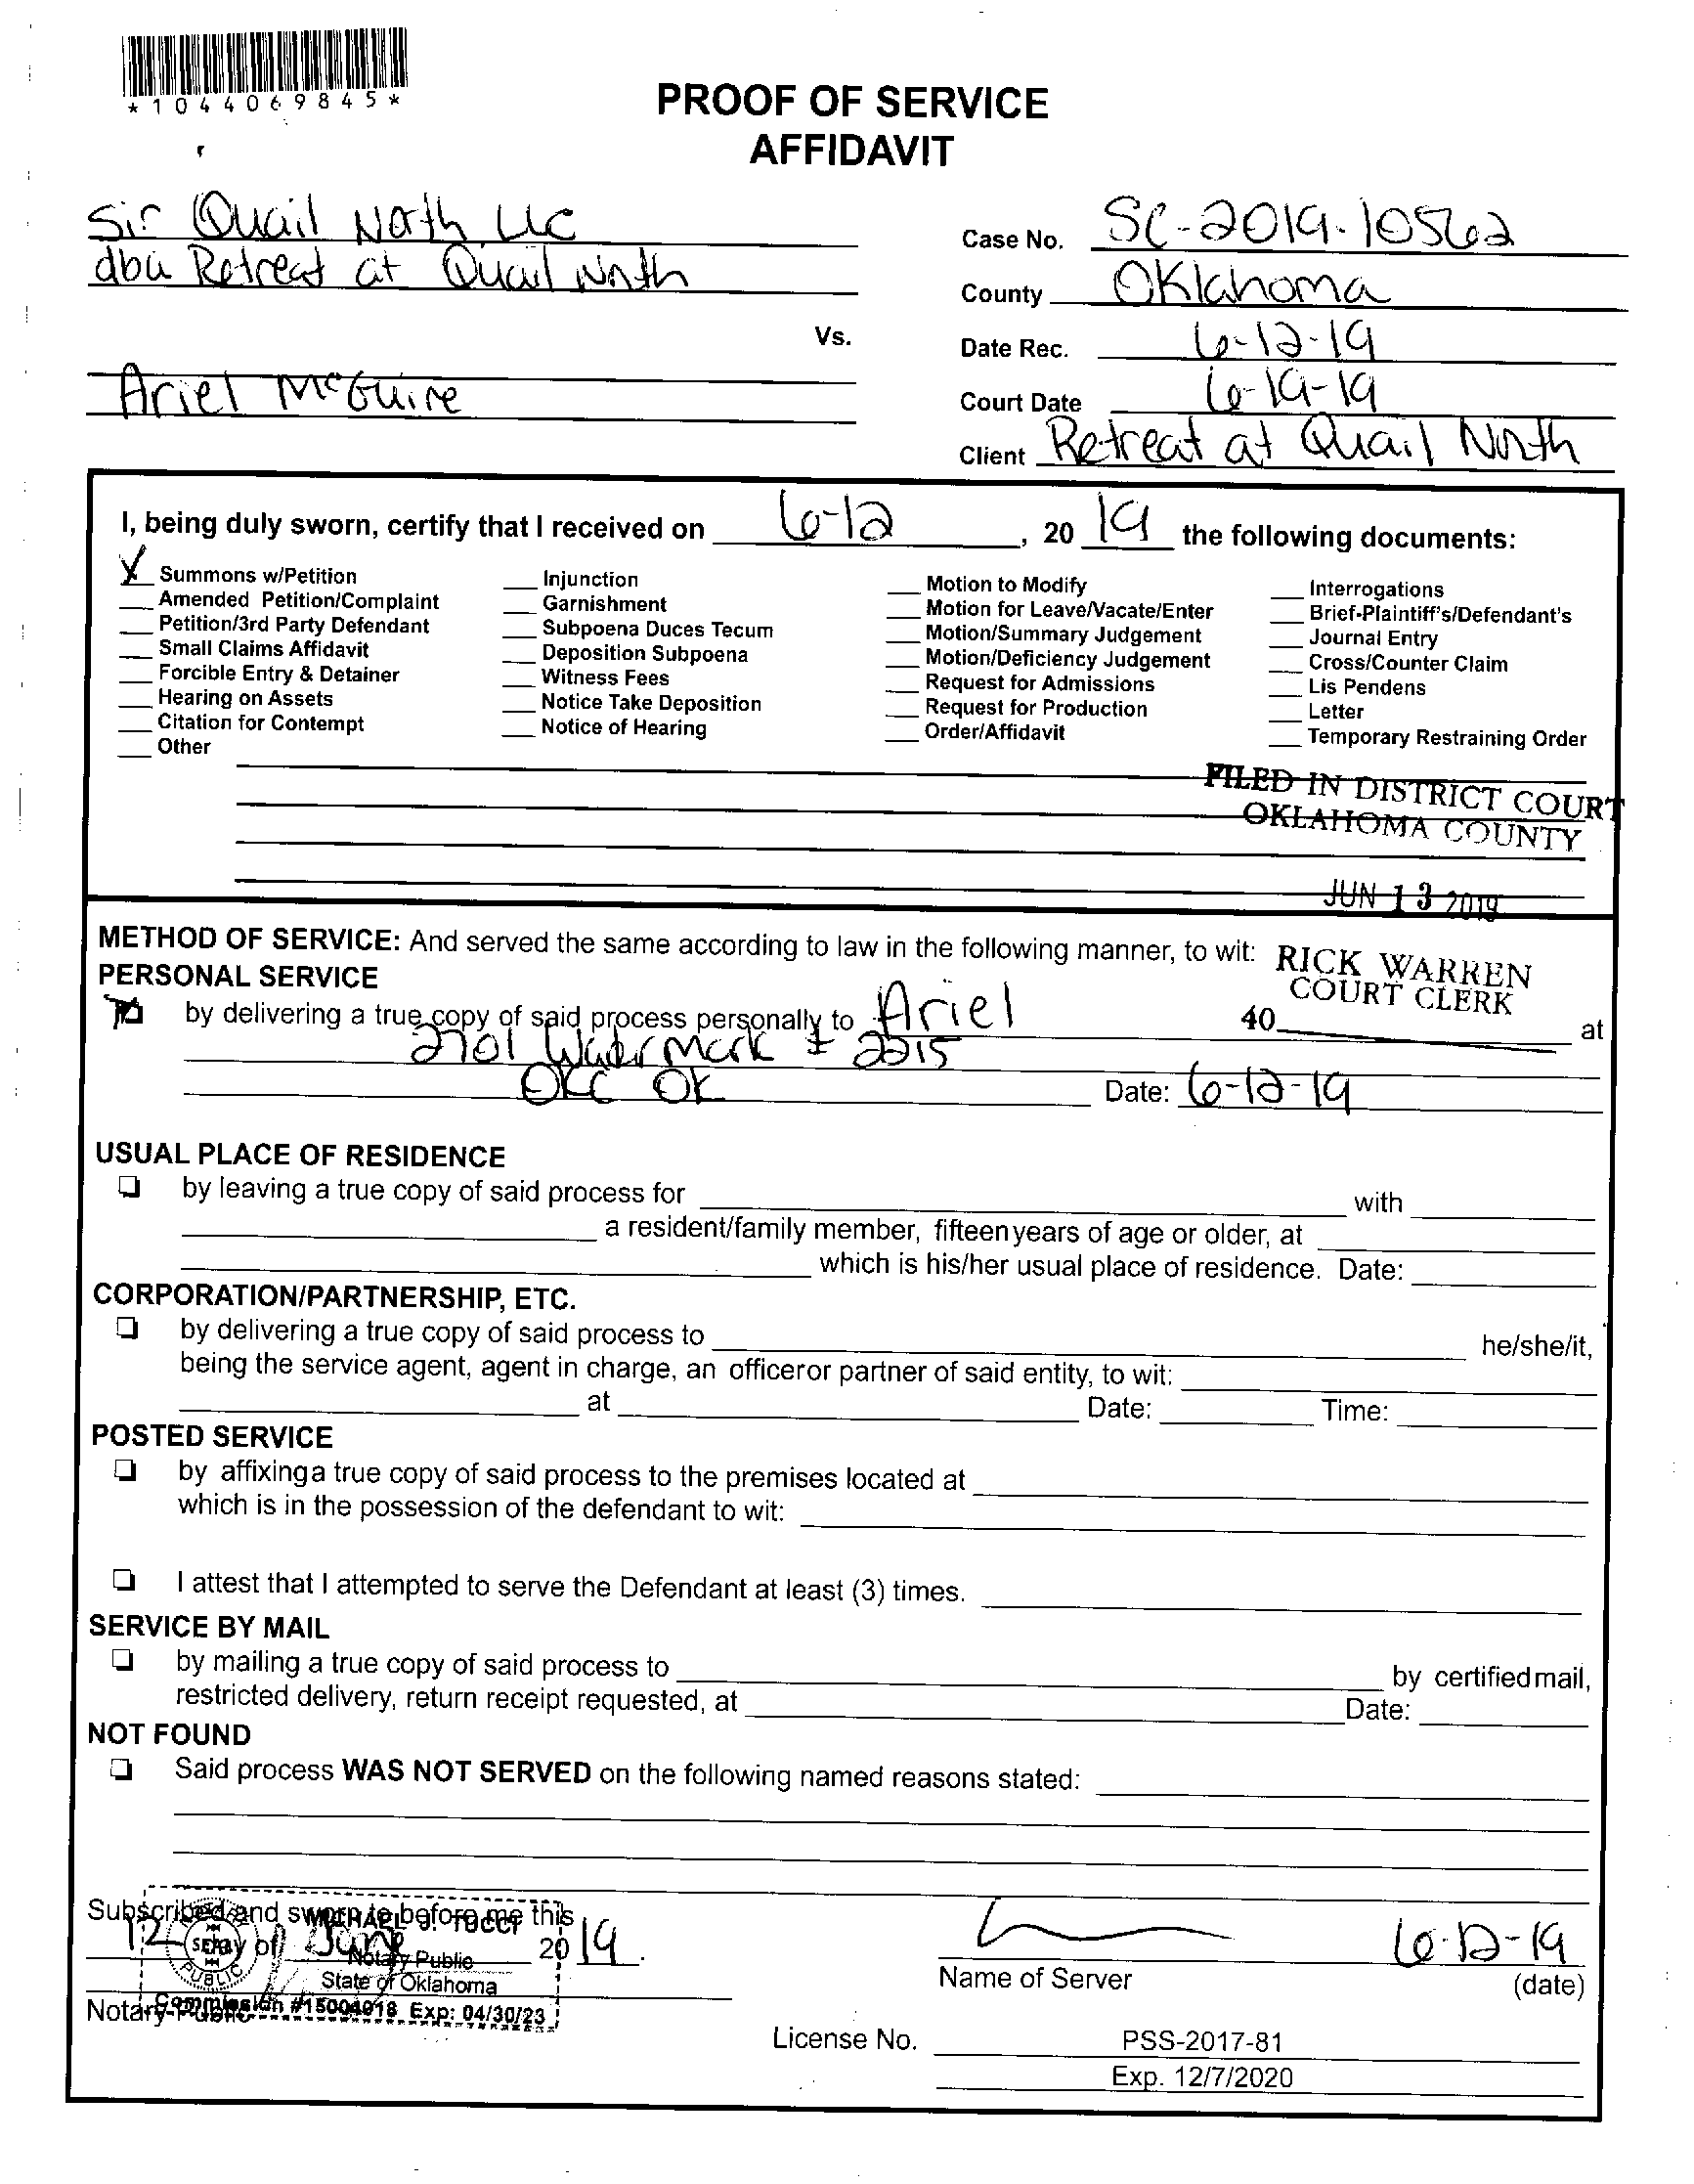 *1044069845*
PROOF OF SERVICE
AFFIDAVIT
Sir Quail North LLC
dba Retreat at Quail North
Vs.
Ariel McGuire
Case No. SC-2019-10562
County Oklahoma
Date Rec. 6-12-19
Court Date 6-19-19
Client Retreat at Quail North
I, being duly sworn, certify that I received on 6-12, 20 19 the following documents:
X Summons w/Petition
Amended Petition/Complaint
Petition/3rd Party Defendant
Small Claims Affidavit
Forcible Entry & Detainer
Hearing on Assets
Citation for Contempt
Other
Injunction
Garnishment
Subpoena Duces Tecum
Deposition Subpoena
Witness Fees
Notice Take Deposition
Notice of Hearing
Motion to Modify
Motion for Leave/Vacate/Enter
Motion/Summary Judgement
Motion/Deficiency Judgement
Request for Admissions
Request for Production
Order/Affidavit
Interrogations
Brief-Plaintiff's/Defendant's
Journal Entry
Cross/Counter Claim
Lis Pendens
Letter
Temporary Restraining Order
FILED IN DISTRICT COURT
OKLAHOMA COUNTY
JUN 13 2019
RICK WARREN
COURT CLERK
40
METHOD OF SERVICE: And served the same according to law in the following manner, to wit:
PERSONAL SERVICE
by delivering a true copy of said process personally to Ariel at
2701 Watermark # 2215
OKC OK Date: 6-12-19
USUAL PLACE OF RESIDENCE
by leaving a true copy of said process for with
a resident/family member, fifteen years of age or older, at
which is his/her usual place of residence. Date:
CORPORATION/PARTNERSHIP, ETC.
by delivering a true copy of said process to he/she/it,
being the service agent, agent in charge, an officeror partner of said entity, to wit:
at Date: Time:
POSTED SERVICE
by affixing a true copy of said process to the premises located at
which is in the possession of the defendant to wit:
I attest that I attempted to serve the Defendant at least (3) times.
SERVICE BY MAIL
by mailing a true copy of said process to by certified mail,
restricted delivery, return receipt requested, at Date:
NOT FOUND
Said process WAS NOT SERVED on the following named reasons stated:
Subscribed and sworn to before me this
12 day of June 2019.
Notary Public
MICHAEL J. TUCCI
Notary Public
State of Oklahoma
Commission #15004018 Exp: 04/30/23
6-12-19
Name of Server (date)
License No. PSS-2017-81
Exp. 12/7/2020